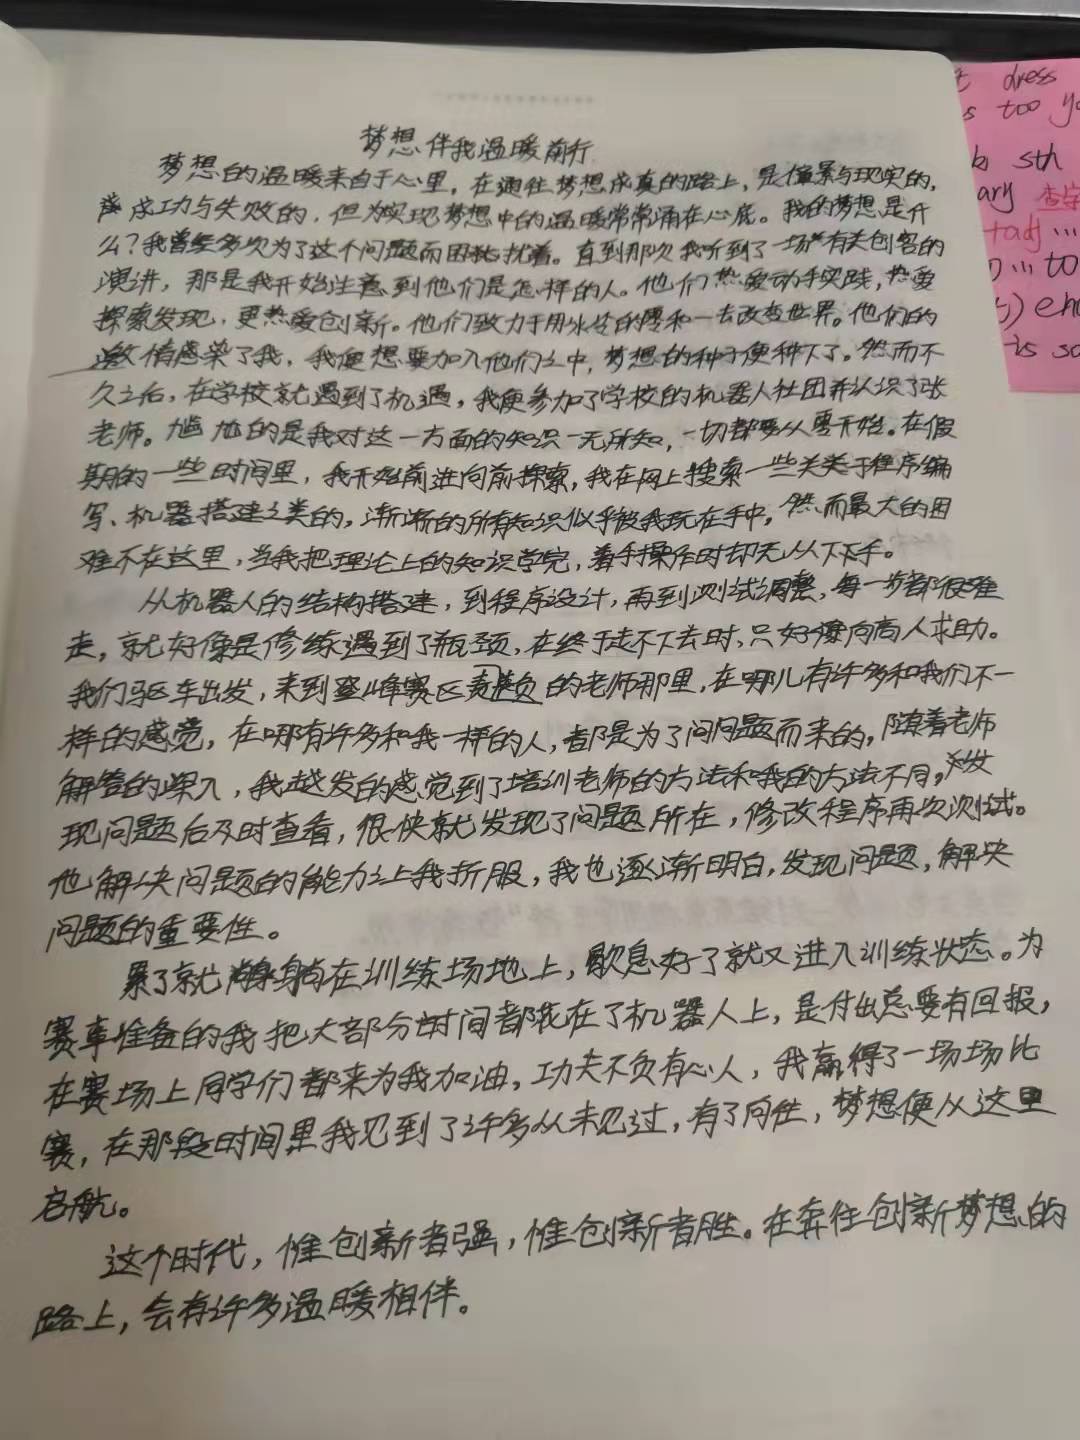 梦想伴我温暖前行
梦想的温暖来自于心里，在通往梦想成真的路上，是憧景与现实的，
成功与失败的，但为实现梦想中的温暖常常涌在心底。我的梦想是什
么？我曾经多次为了这个问题而困扰着。直到那次我听到了一场“有关创客的
演讲，那是我开始注意到他们是怎样的人。他们热爱动手实践，热爱
探索发现，更热爱创新。他们致力于用冰冷的零和一去改变世界。他们的
激情感染了我，我便想要加入他们之中，梦想的种子便种下了。然而不
久之后，在学校就遇到了机遇，我便参加了学校的机器人社团并认识了张
老师。尴尬的是我对这一方面的知识一无所知，一切都要从零开始。在假
期的一些时间里，我开始前进向前探索，我在网上搜索一些关于程序编
写、机器搭建之类的，渐渐的所有知识似乎被我玩在手中，然而最大的困
难不在这里，当我把理论上的知识学完，着手操作时却无从下手。
从机器人的结构搭建，到程序设计，再到测试调整，每一步都很难
走，就好像是修练遇到了瓶颈，在终于走不下去时，只好向高人求助。
我们驱车出发，来到登峰赛区负的老师那里，在哪儿有许多和我们不一
样的感觉，在哪有许多和我一样的人，都是为了问问题而来的，随着老师
解答的深入，我越发的感觉到了培训老师的方法和我的方法不同，发
现问题后及时查看，很快就发现了问题所在，修改程序再次测试。
他解决问题的能力让我折服，我也逐渐明白，发现问题，解决
问题的重要性。
累了就躺在训练场地上，歇息好了就又进入训练状态。为
赛事准备的我把大部分时间都花在了机器人上，是付出总要有回报，
在赛场上同学们都来为我加油，功夫不负有心人，我赢得了一场场比
赛，在那段时间里我见到了许多从未见过，有了向往，梦想便从这里
启航。
这个时代，惟创新者强，惟创新者胜。在奔往创新梦想的
路上，会有许多温暖相伴。
dress
too
sth
ary 查字
+adj …
… to
is so